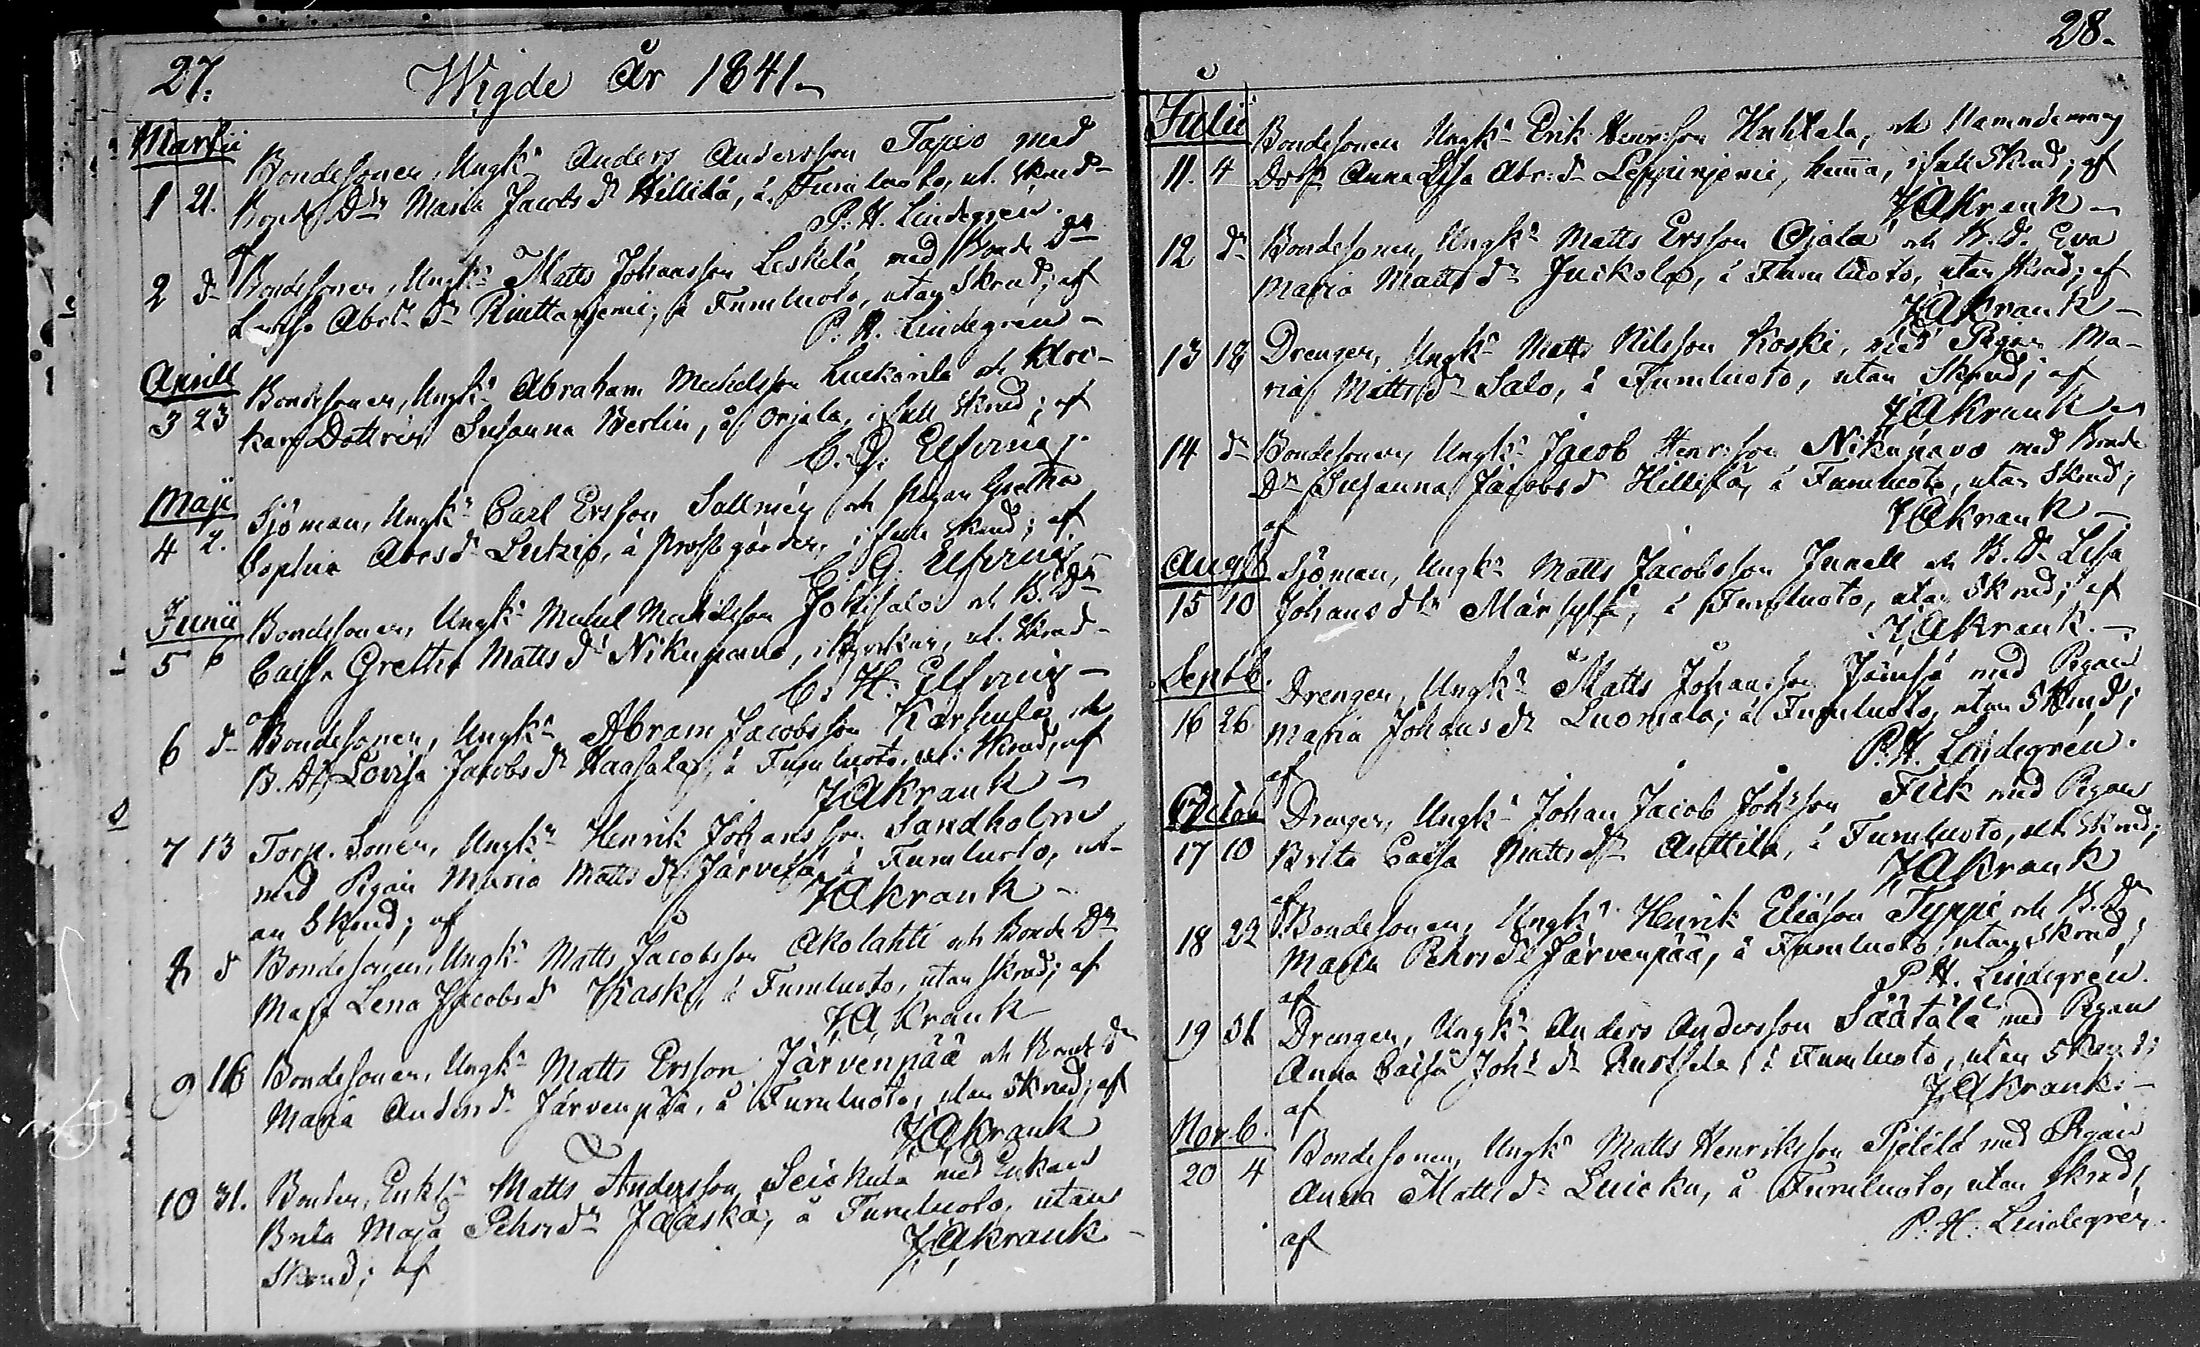 27.
Wigde år 1841.
Martii
Bondesonen, Ungk. Anders Andersson Tapio med
1 21. Bonde Dn Maria Jacobs dr Hillilä, å Fumluoto, ut. skrud
af P. H. Lindegren.
2 d Bondesonen, Ungk. Matts Johansson Leskelä med Bonde Dn
Abr. dr å Fumluoto, utan skrud; af
P. H. Lindegren
Aprill
Bondesonen, Ungk. Abraham Michelsson och Kloc-
3 23 kare Dottren Susanna Berlin, å Orjala, i full skrud; af
C. G. Elfving.
Maji
Sjöman, Ungk. Carl Ersson Sallmén och Pigan Gretha
4 2. Sophia å Prostgården, i full skrud; af
C. G. Elfving
Junii
Bondesonen, Ungk. Michel Michelsson Jokisalo och B. Dn
5 6 Caisa Gretha Matts dr Nikupavo, i Kyrkan, ut. skrud
af C. H. Elfving
6 d Bondesonen, Ungk. Abram Jacobsson Karhula och
B. Dr Lovisa Jacobs dr Haasala, å Fumluoto, ut. skrud, af
J A Krank
7 13 Torp. Sonen, Ungk. Henrik Johansson Sandholm
med Pigan Maria Matts dr Järvelä, å Fumluoto, ut-
an skrud; af J A Krank
8 d Bondesonen, Ungk. Matts Jacobsson Akolahti och Bonde Dn
Maja Lena Jacobs dr Kaski, å Fumluoto, utan skrud; af
J A Krank
9 16 Bondesonen, Ungk. Matts Ersson Järvenpää och Bonde dr
Maria Anders dr Järvenpää, å Fumluoto, utan skrud; af
J A Krank
10 31. Bonden, Enkl. Matts Andersson med Enkan
Brita Maja Pehrs dr Jääskä, å Fumluoto, utan
skrud; af J A Krank
28.
Julii
Bondesonen Ungk. Erik Henr. son Huhtala, och Nämndemans
11. 4 Dottr. Anna Lisa Abr. dr Leppinjemi, hemma, i full skrud; af
J A Krank
12 d Bondesonen, Ungk. Matts Ersson Ojala och B. D. Eva
Maria Matts dr Juckola, å Fumluoto, utan skrud; af
J A Krank
13 18 Drengen, Ungk. Matts Nilsson Koski, med Pigan Ma-
ria Matts dr Salo, å Fumluoto, utan skrud; af
J A Krank
14 d Bondesonen, Ungk. Jacob Henr. son Nikupavo med Bonde
Dn Susanna Jacobs dr Hillilä, å Fumluoto, utan skrud;
af J A Krank
Aug.
Sjöman, Ungk. Matts Jacobsson Junell och B. D. Lisa
15 10 Johans dr Märsylä, å Fumluoto, utan skrud; af
J A Krank.
Septb.
Drengen, Ungk. Matts Johansson Jämsä med Pigan
16 26 Maria Johans dr Luomala; å Fumluoto, utan skrud;
af P. H. Lindegren.
October
Drengen, Ungk. Johan Jacob Joh. son Filk med Pigan
17 10 Brita Caisa Matts dr Anttila, å Fumluoto, ut. skrud;
af J A Krank
18 22 Bondesonen, Ungk. Henrik Eliasson Typpi och B. Dn
Maria Pehrs dr Järvenpää, å Fumluoto, utan skrud;
af P. H. Lindegren.
19 31 Drengen, Ungk. Anders Andersson Säätälä med Pigan
Anna Caisa Joh. dr å Fumluoto, utan skrud;
af J A Krank.
Novb.
Bondesonen, Ungk. Matts Henriksson Pjelilä med Pigan
20 4 Anna Matts dr Luicku, å Fumluoto, utan skrud,
af P. H. Lindegren.